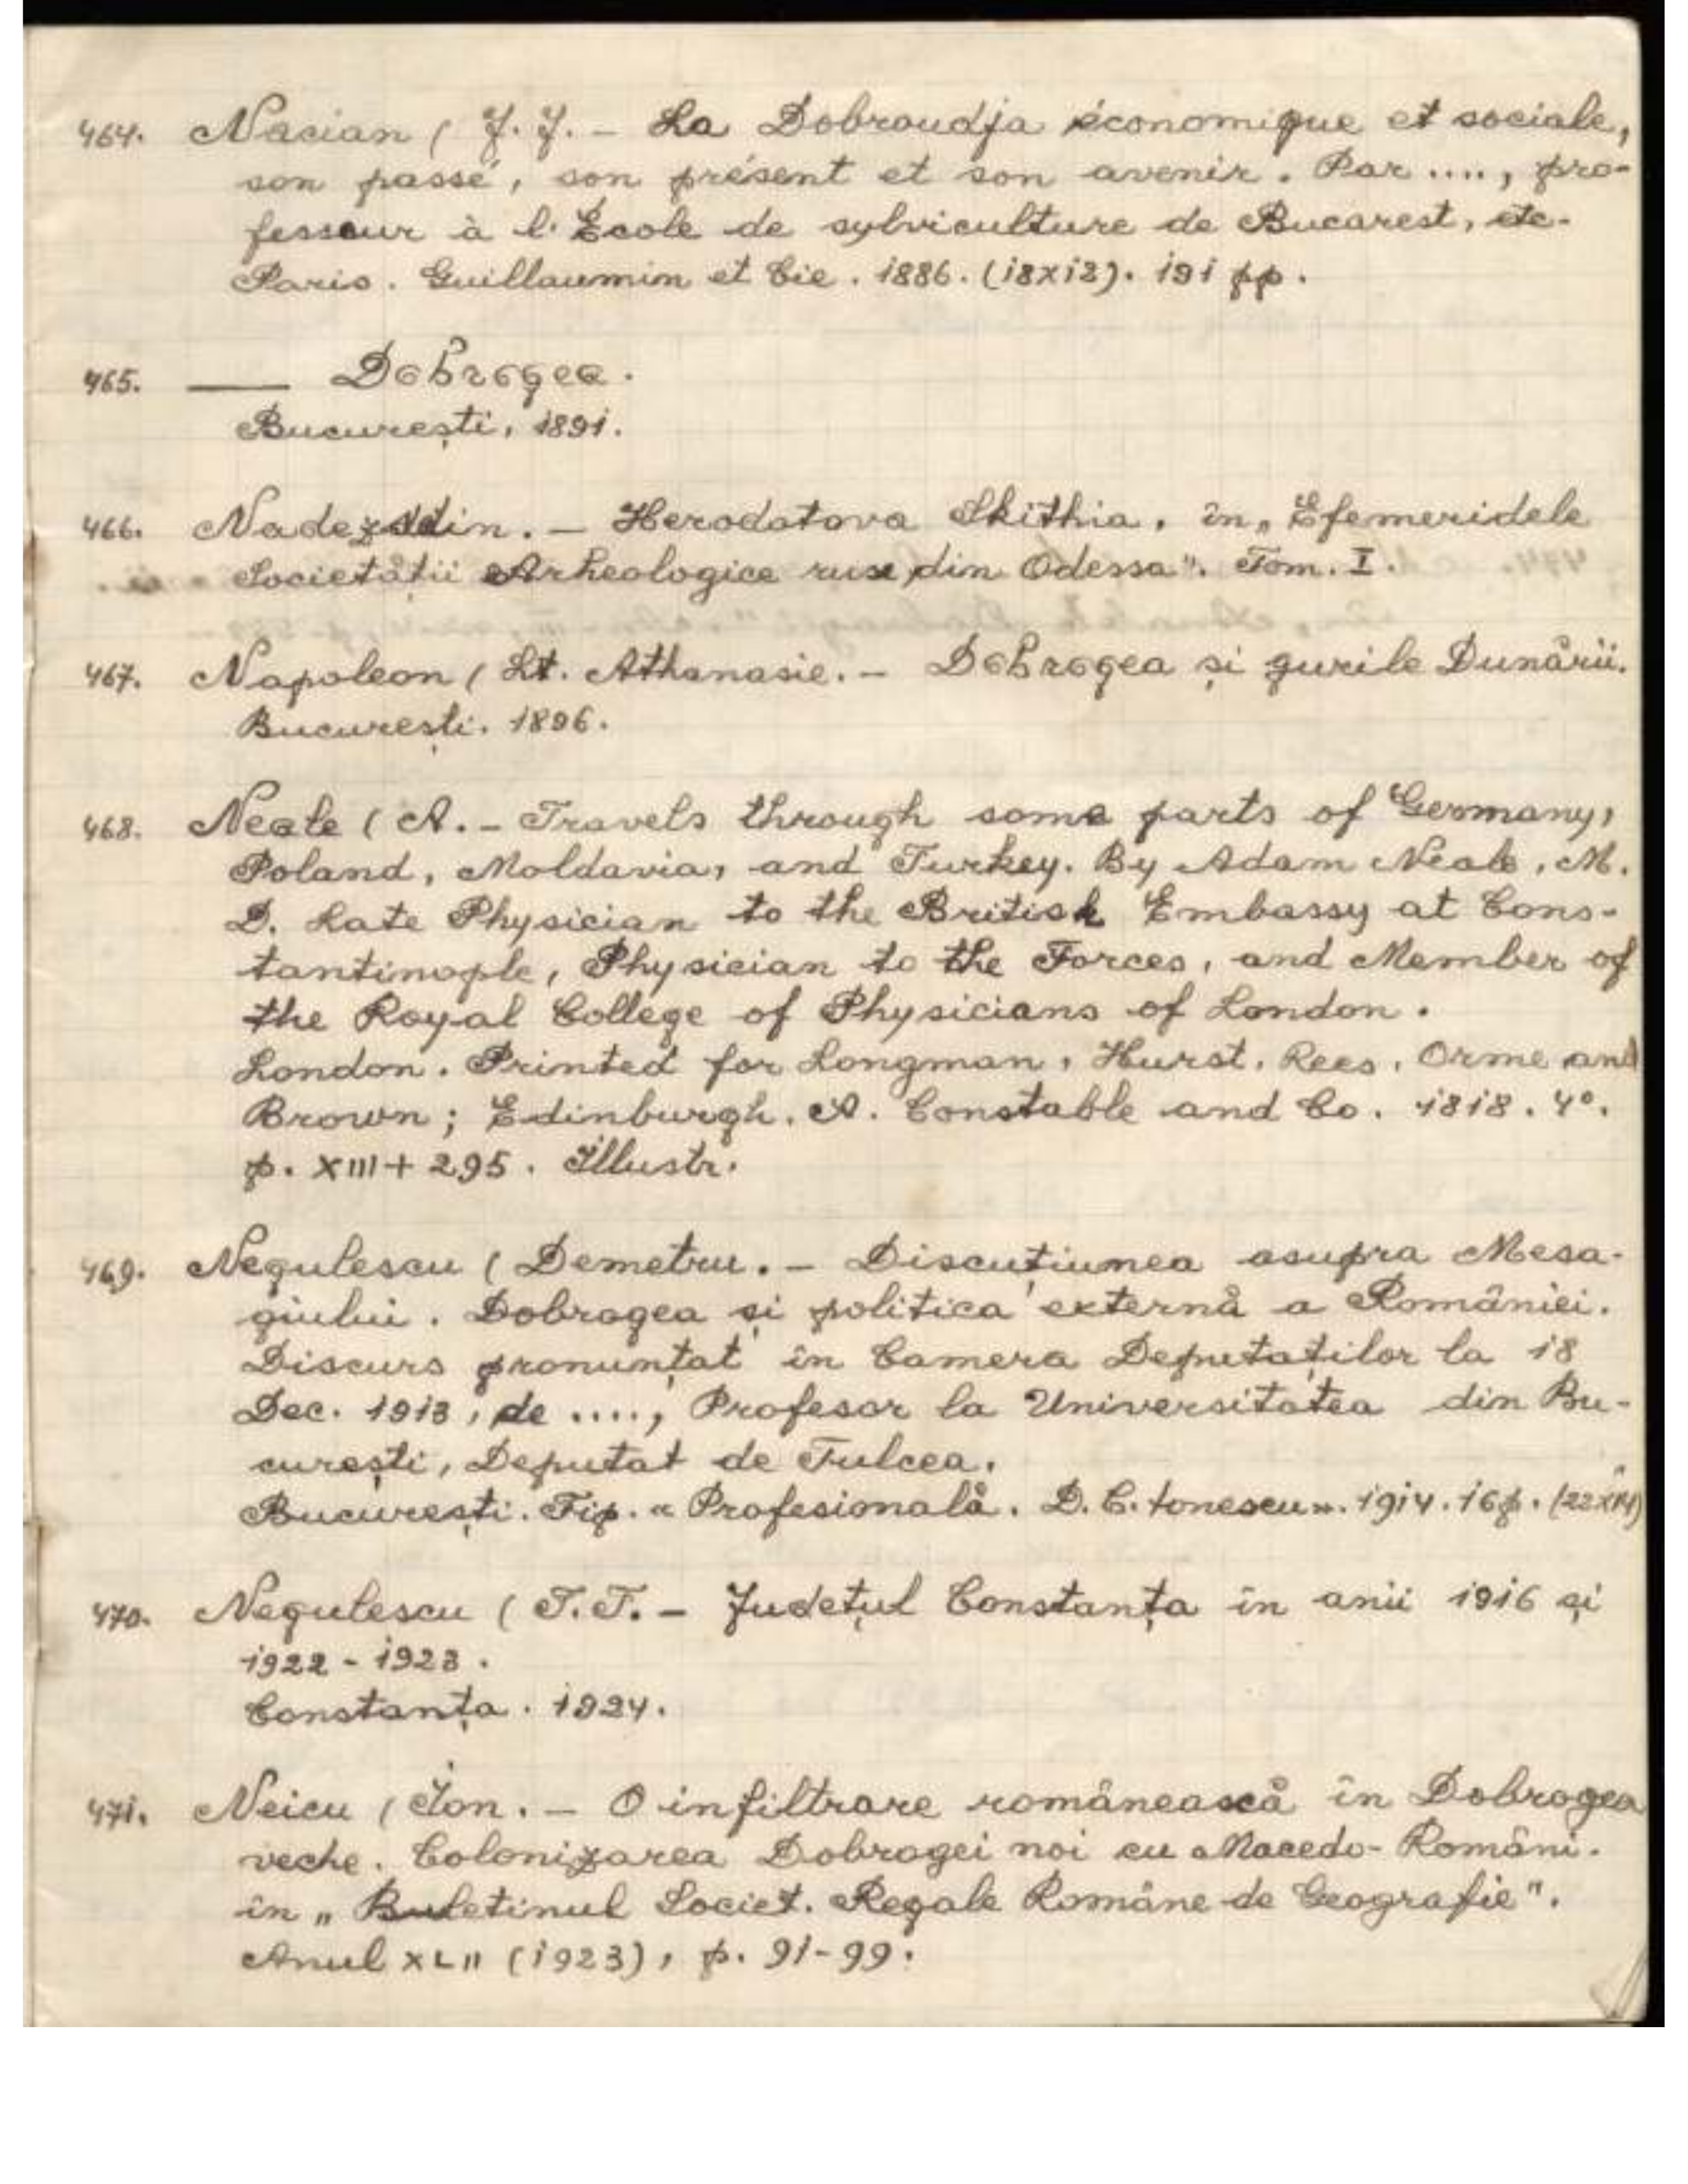 464. Nacian ( J. J. – La Dobroudja économique et sociale,
son passé, son présent et son avenir. Par ...., pro-
fesseur à l'École de sylviculture de Bucarest, etc.
Paris. Guillaumin et Cie. 1886. (18x12). 191 pp.
465. —— Dobrogea.
București, 1891.
466. Nadezddin. – Herodotova Skithia, în „Efemeridele
Societății Arheologice ruse din Odessa". Tom. I.
467. Napoleon ( Lt. Athanasie. – Dobrogea și gurile Dunării.
București. 1896.
468. Neale ( A. – Travels through some parts of Germany,
Poland, Moldavia, and Turkey. By Adam Neale, M.
D. Late Physician to the British Embassy at Cons-
tantinople, Physician to the Forces, and Member of
the Royal College of Physicians of London.
London. Printed for Longman, Hurst, Rees, Orme and
Brown; Edinburgh. A. Constable and Co. 1818. 4°.
p. XIII + 295. Illustr.
469. Negulescu ( Demetru. – Discuțiunea asupra Mesa-
giului. Dobrogea și politica externă a României.
Discurs pronunțat în Camera Deputaților la 18
Dec. 1913, de ...., Profesor la Universitatea din Bu-
curești, Deputat de Tulcea.
București. Tip. « Profesională. D. C. Ionescu». 1914. 16 p. (22x14)
470. Negulescu ( T. T. – Județul Constanța în anii 1916 și
1922 - 1923.
Constanța. 1924.
471. Neicu ( Ion. – O infiltrare românească în Dobrogea
veche. Colonizarea Dobrogei noi cu Macedo-Români.
în „Buletinul Societ. Regale Române de Geografie".
Anul XLII (1923), p. 91-99.